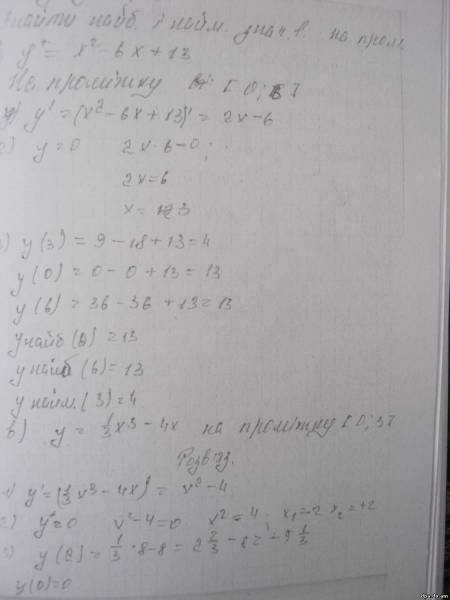 знайти найб. і найм. знач. ф. на пром.
y = x² - 6x + 13
На проміжку [0; 6]
y' = (x² - 6x + 13)' = 2x - 6
2) y = 0 2x · 6 - 0;
2x = 6
x = 3
3) y(3) = 9 - 18 + 13 = 4
y(0) = 0 - 0 + 13 = 13
y(6) = 36 - 36 + 13 = 13
y найб (0) = 13
y найб (6) = 13
y найм. (3) = 4
в) y = 1/3 x³ - 4x на проміжку [0; 3]
Розв'яз.
1) y' = (1/3 x³ - 4x)' = x² - 4
2) y' = 0 x² - 4 = 0 x² = 4; x₁ = -2 x₂ = +2
3) y(2) = 1/3 · 8 - 8 = 2 2/3 - 8 = - 5 1/3
y(0) = 0